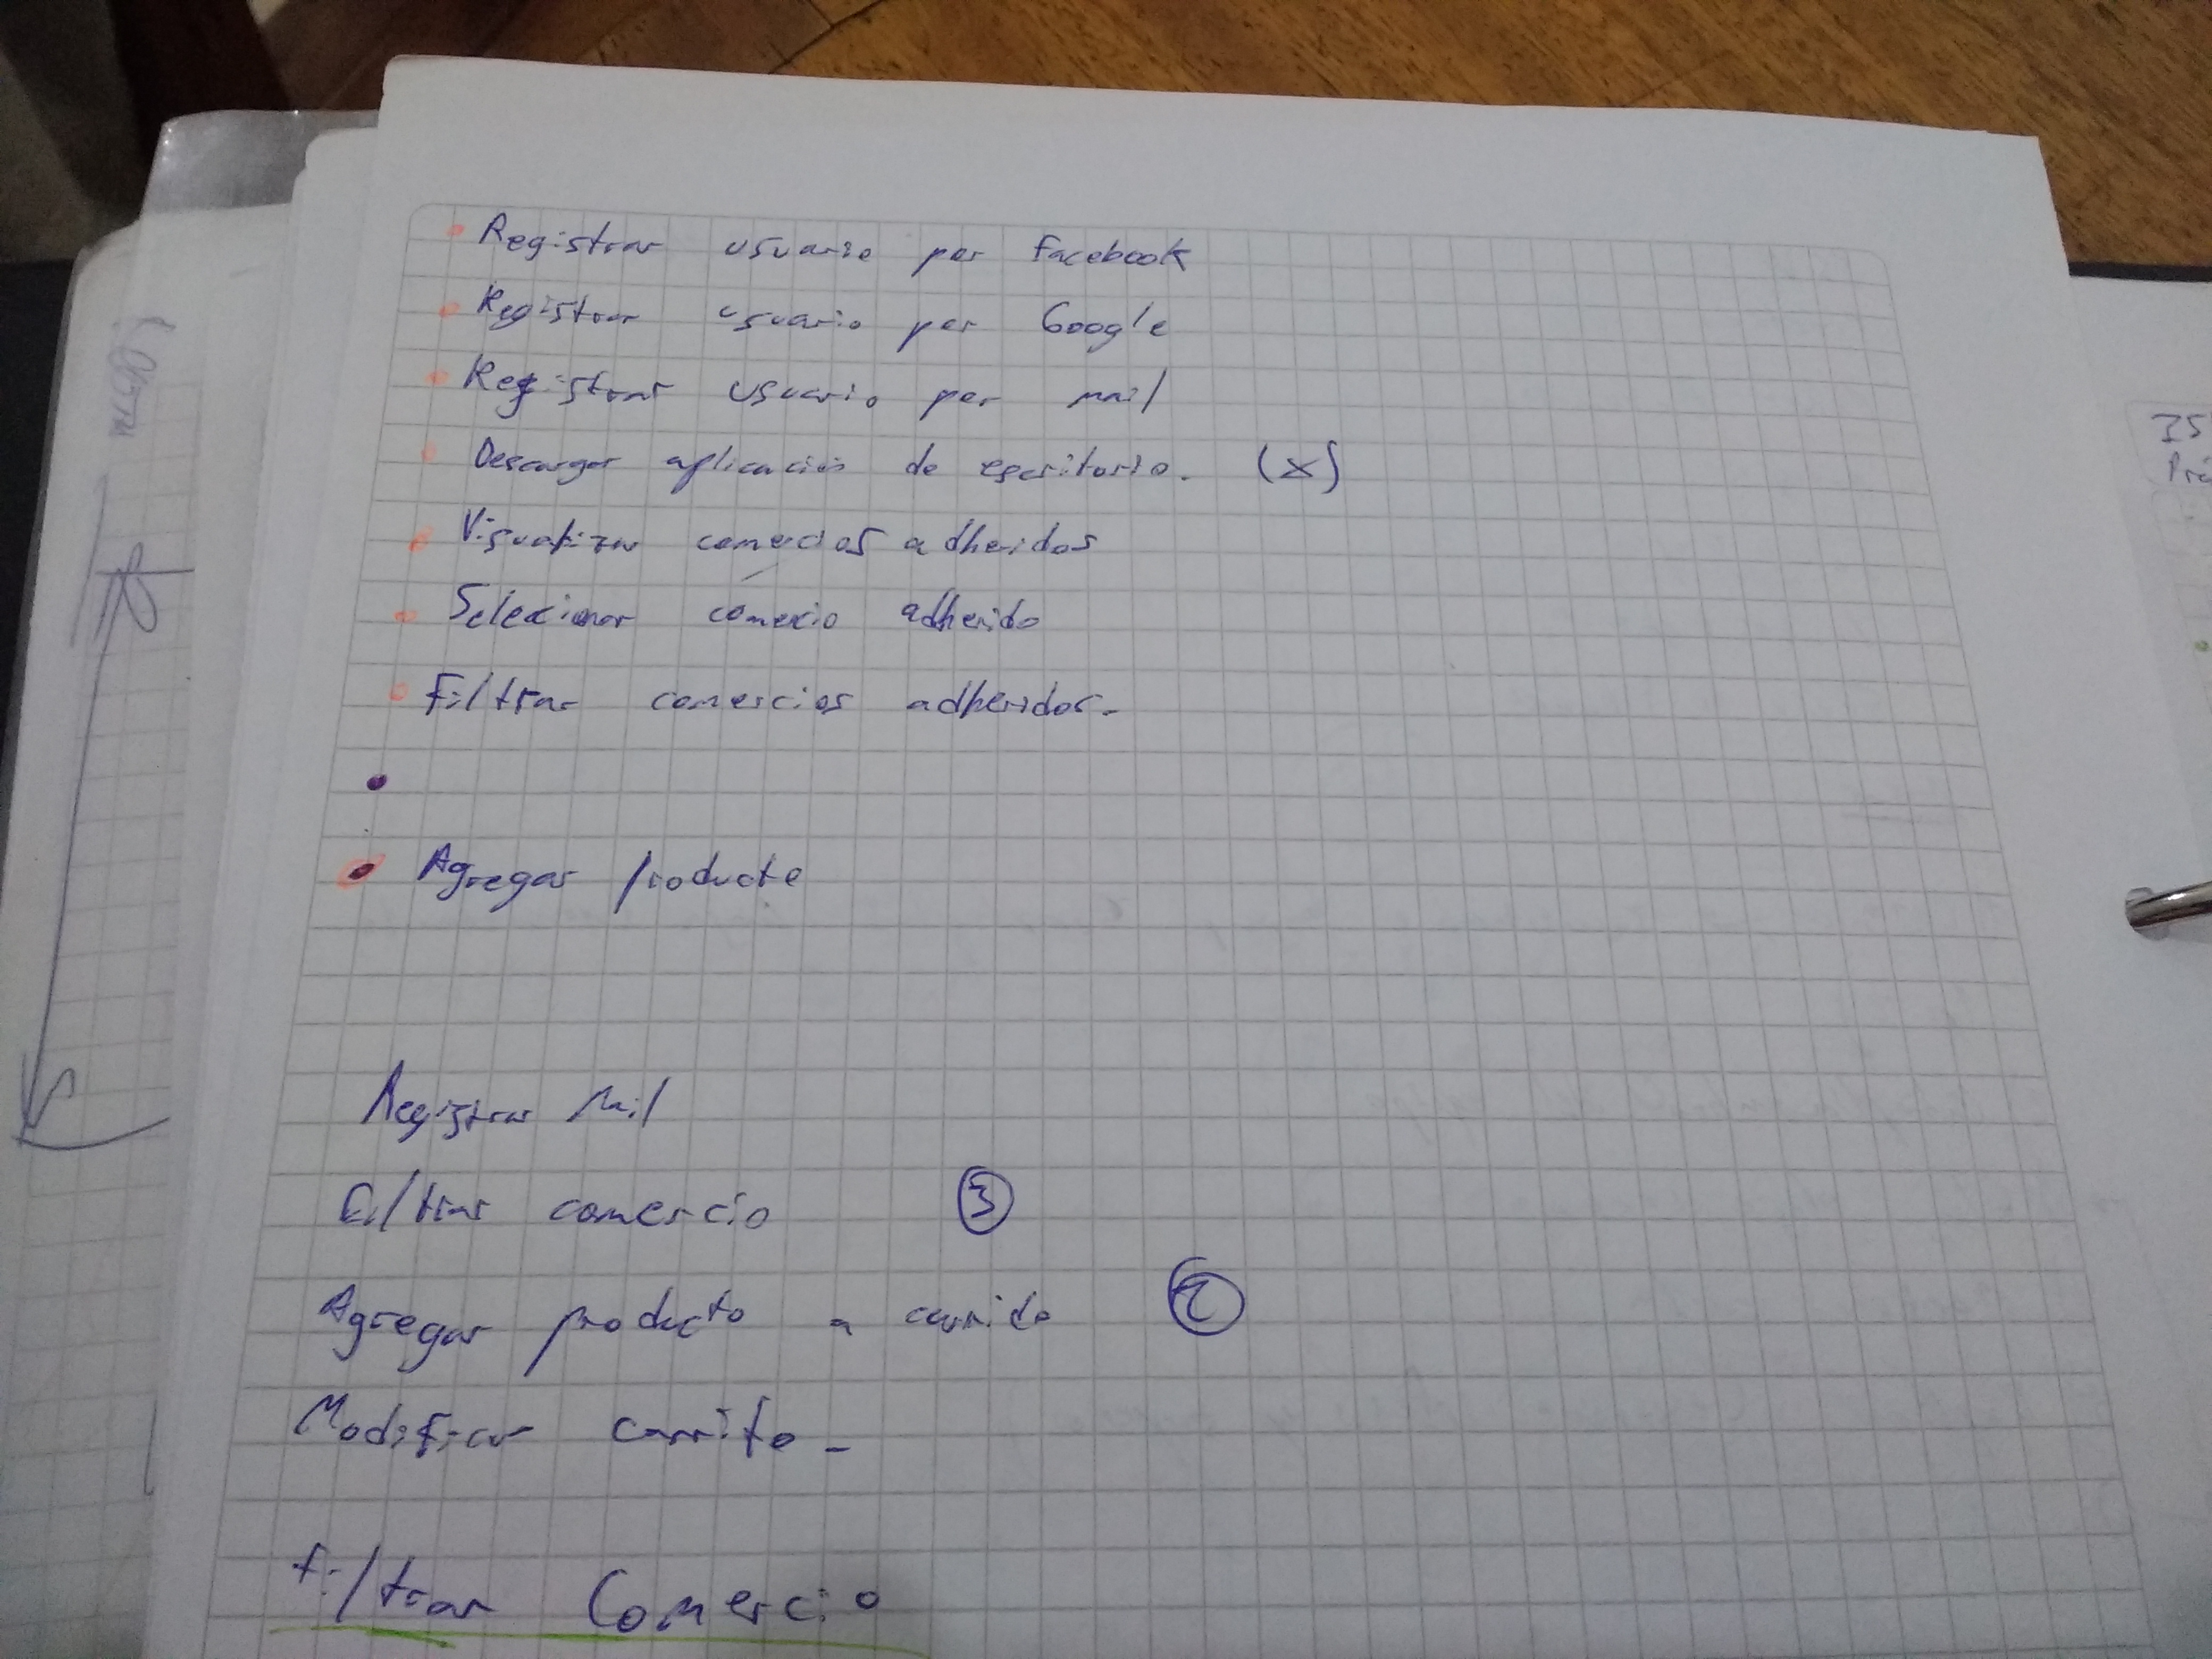 Registrar usuario por Facebook
Registrar usuario por Google
Registrar usuario por mail
Descargar aplicación de escritorio. (X)
Visualizar comercios adheridos
Seleccionar comercio adherido
Filtrar comercios adheridos.
Agregar producto
Registrar Mail
Filtrar comercio 3
Agregar producto a carrito 2
Modificar carrito -
Filtrar Comercio
IS